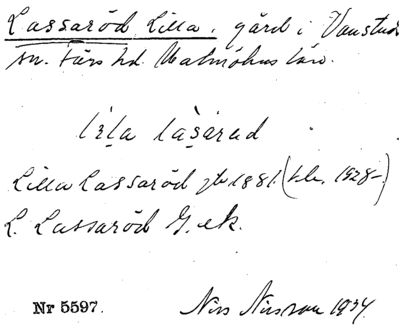 Lassaröd Lilla, gård i Vanstad
sn. Färs hd. Malmöhus län.
lịḷa lạsạrad
Lilla Lassaröd jb 1881. (hla. 1928-)
L. Lassaröd G. ek.
Nr 5597. Nils Nilsson 1934